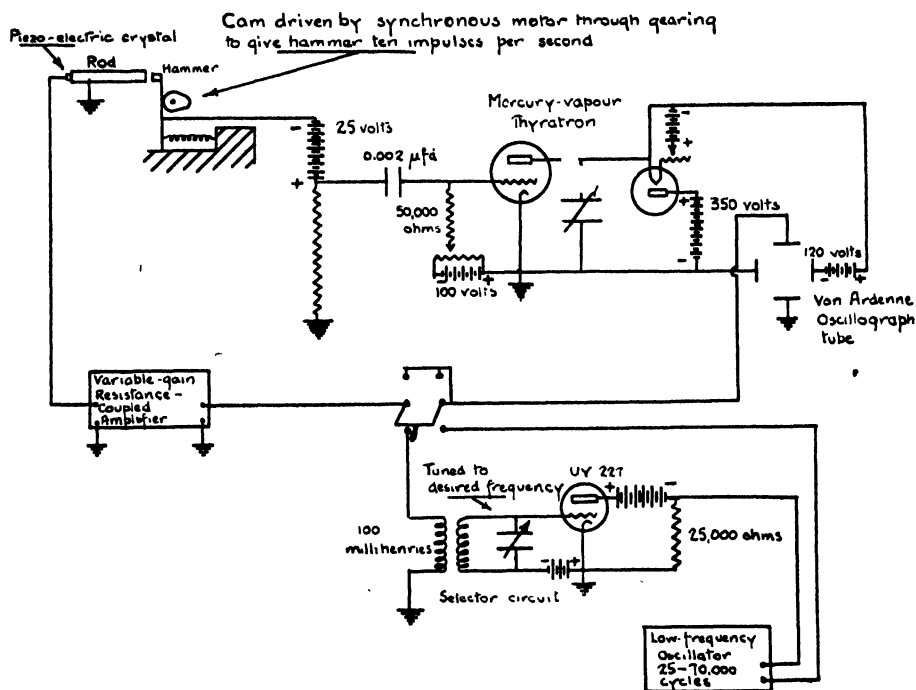 Cam driven by synchronous motor through gearing
to give hammer ten impulses per second
Piezo-electric crystal
Rod
Hammer
Mercury-vapour
Thyratron
- 25 volts
+
0.002 μfd
50,000
ohms
- +
100 volts
-
+
+ 350 volts
-
120 volts
- +
Von Ardenne
Oscillograph
tube
Variable-gain
Resistance-
Coupled
Amplifier
Tuned to
desired frequency
UY 227
+ -
100
millihenries
25,000 ohms
- +
Selector circuit
Low-frequency
Oscillator
25-70,000
cycles